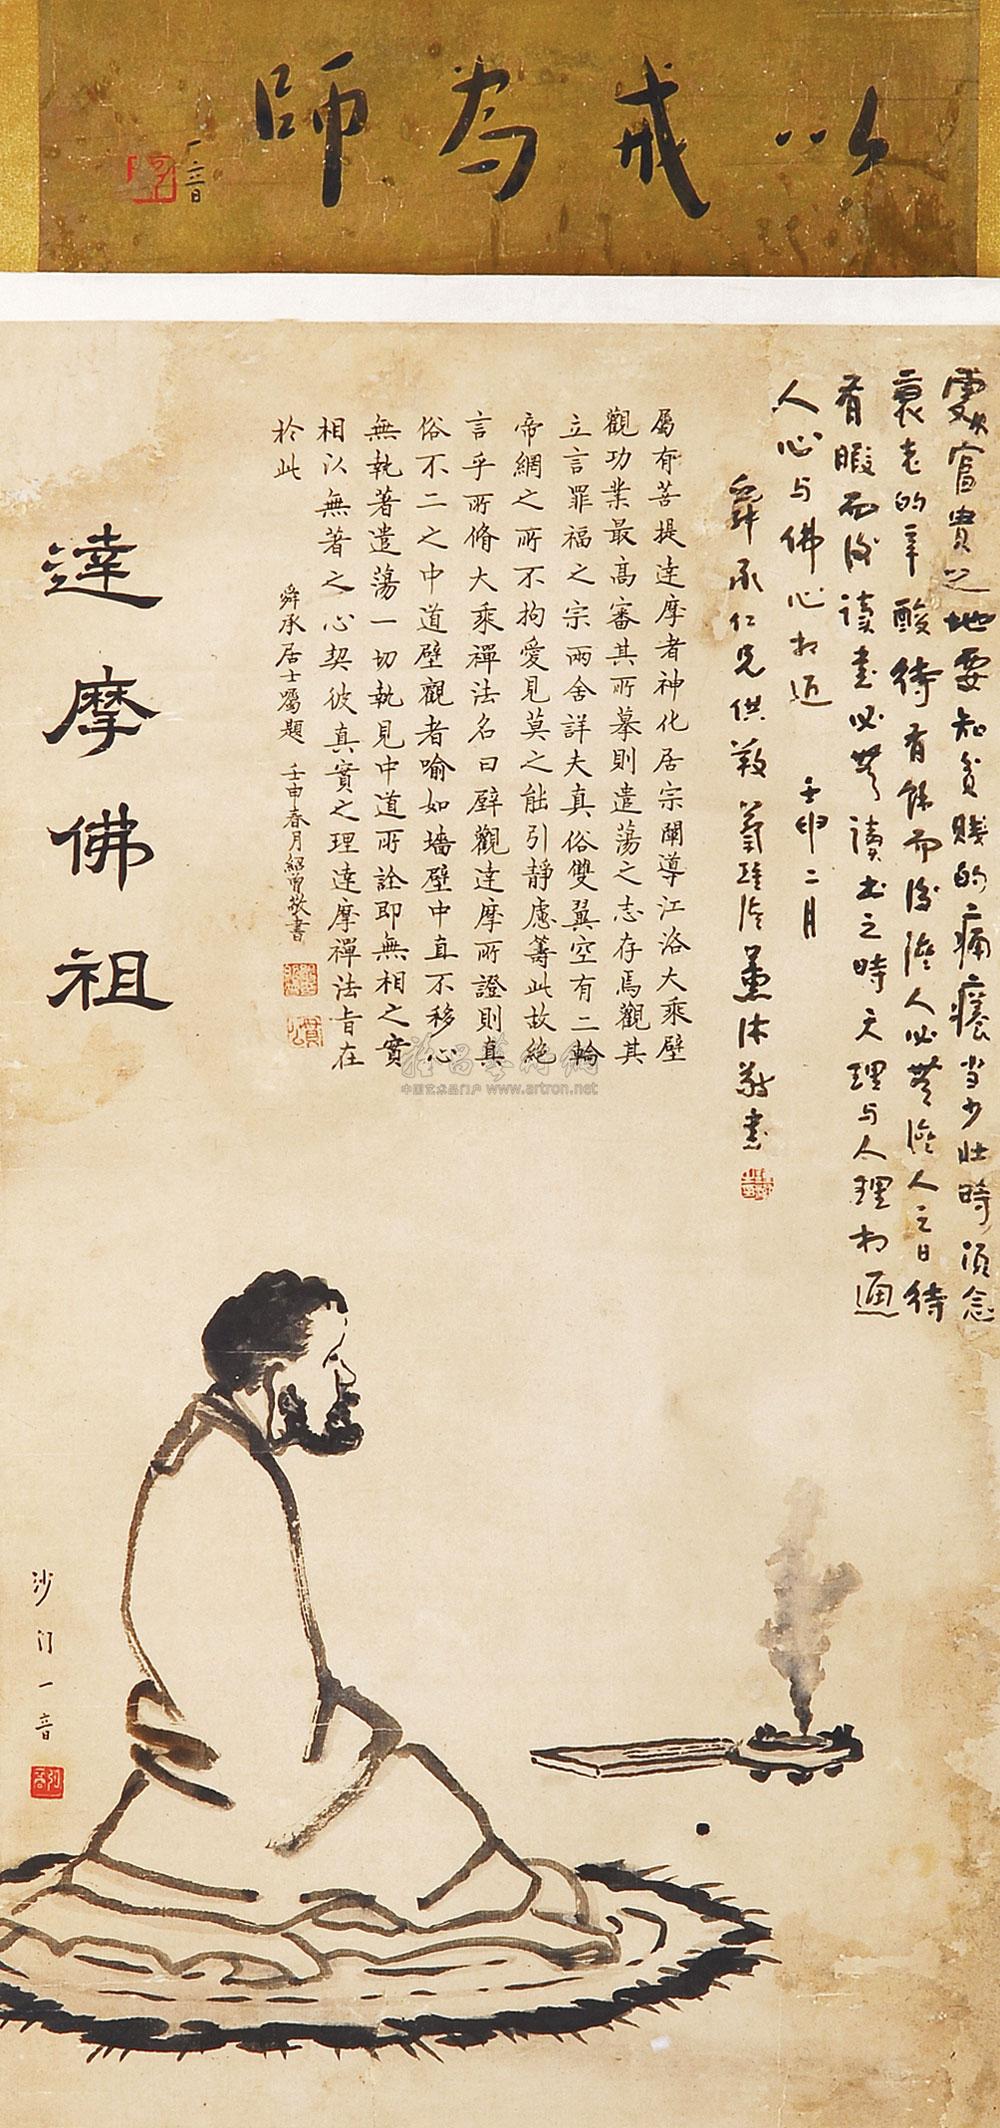 以戒為師
一音
處富貴之地要知貧賤的痛癢当少壯時須念
衰老的辛酸待有餘而後濟人必無濟人之日待
有暇而後读書必無讀书之時天理与人理相通
人心与佛心相近 壬申二月
舜承仁兄供养
敬書
屬有菩提達摩者神化居宗闡導江洛大乘壁
觀功業最高審其所摹則遣蕩之志存焉觀其
立言罪福之宗兩舍詳夫真俗雙翼空有二輪
帝網之所不拘愛見莫之能引靜慮籌此故絕
言乎所脩大乘禪法名曰壁觀達摩所證則真
俗不二之中道壁觀者喻如墻壁中直不移心
無執著遣蕩一切執見中道所詮即無相之實
相以無著之心契彼真實之理達摩禪法旨在
於此
舜承居士屬題 壬申春月紹曾敬書
達摩佛祖
沙门一音
中国艺术品门户 www.artron.net